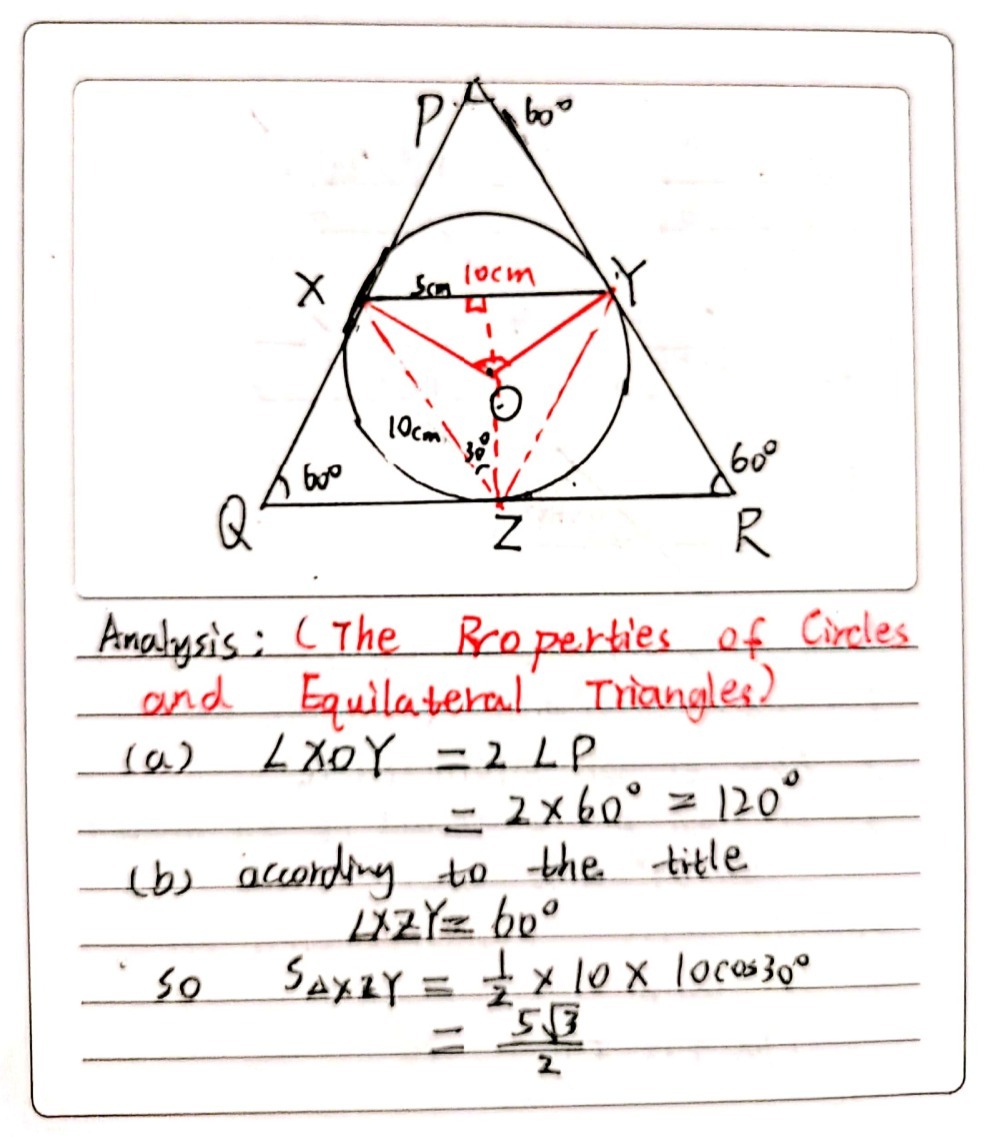 P 60°
X 5cm 10cm Y
O
10cm 30°
60° 60°
Q Z R
Analysis: (The Properties of Circles
and Equilateral Triangles)
(a) ∠XOY = 2∠P
= 2×60° = 120°
(b) according to the title
∠XZY = 60°
so S△XZY = 1/2 × 10 × 10cos30°
= 5√3/2